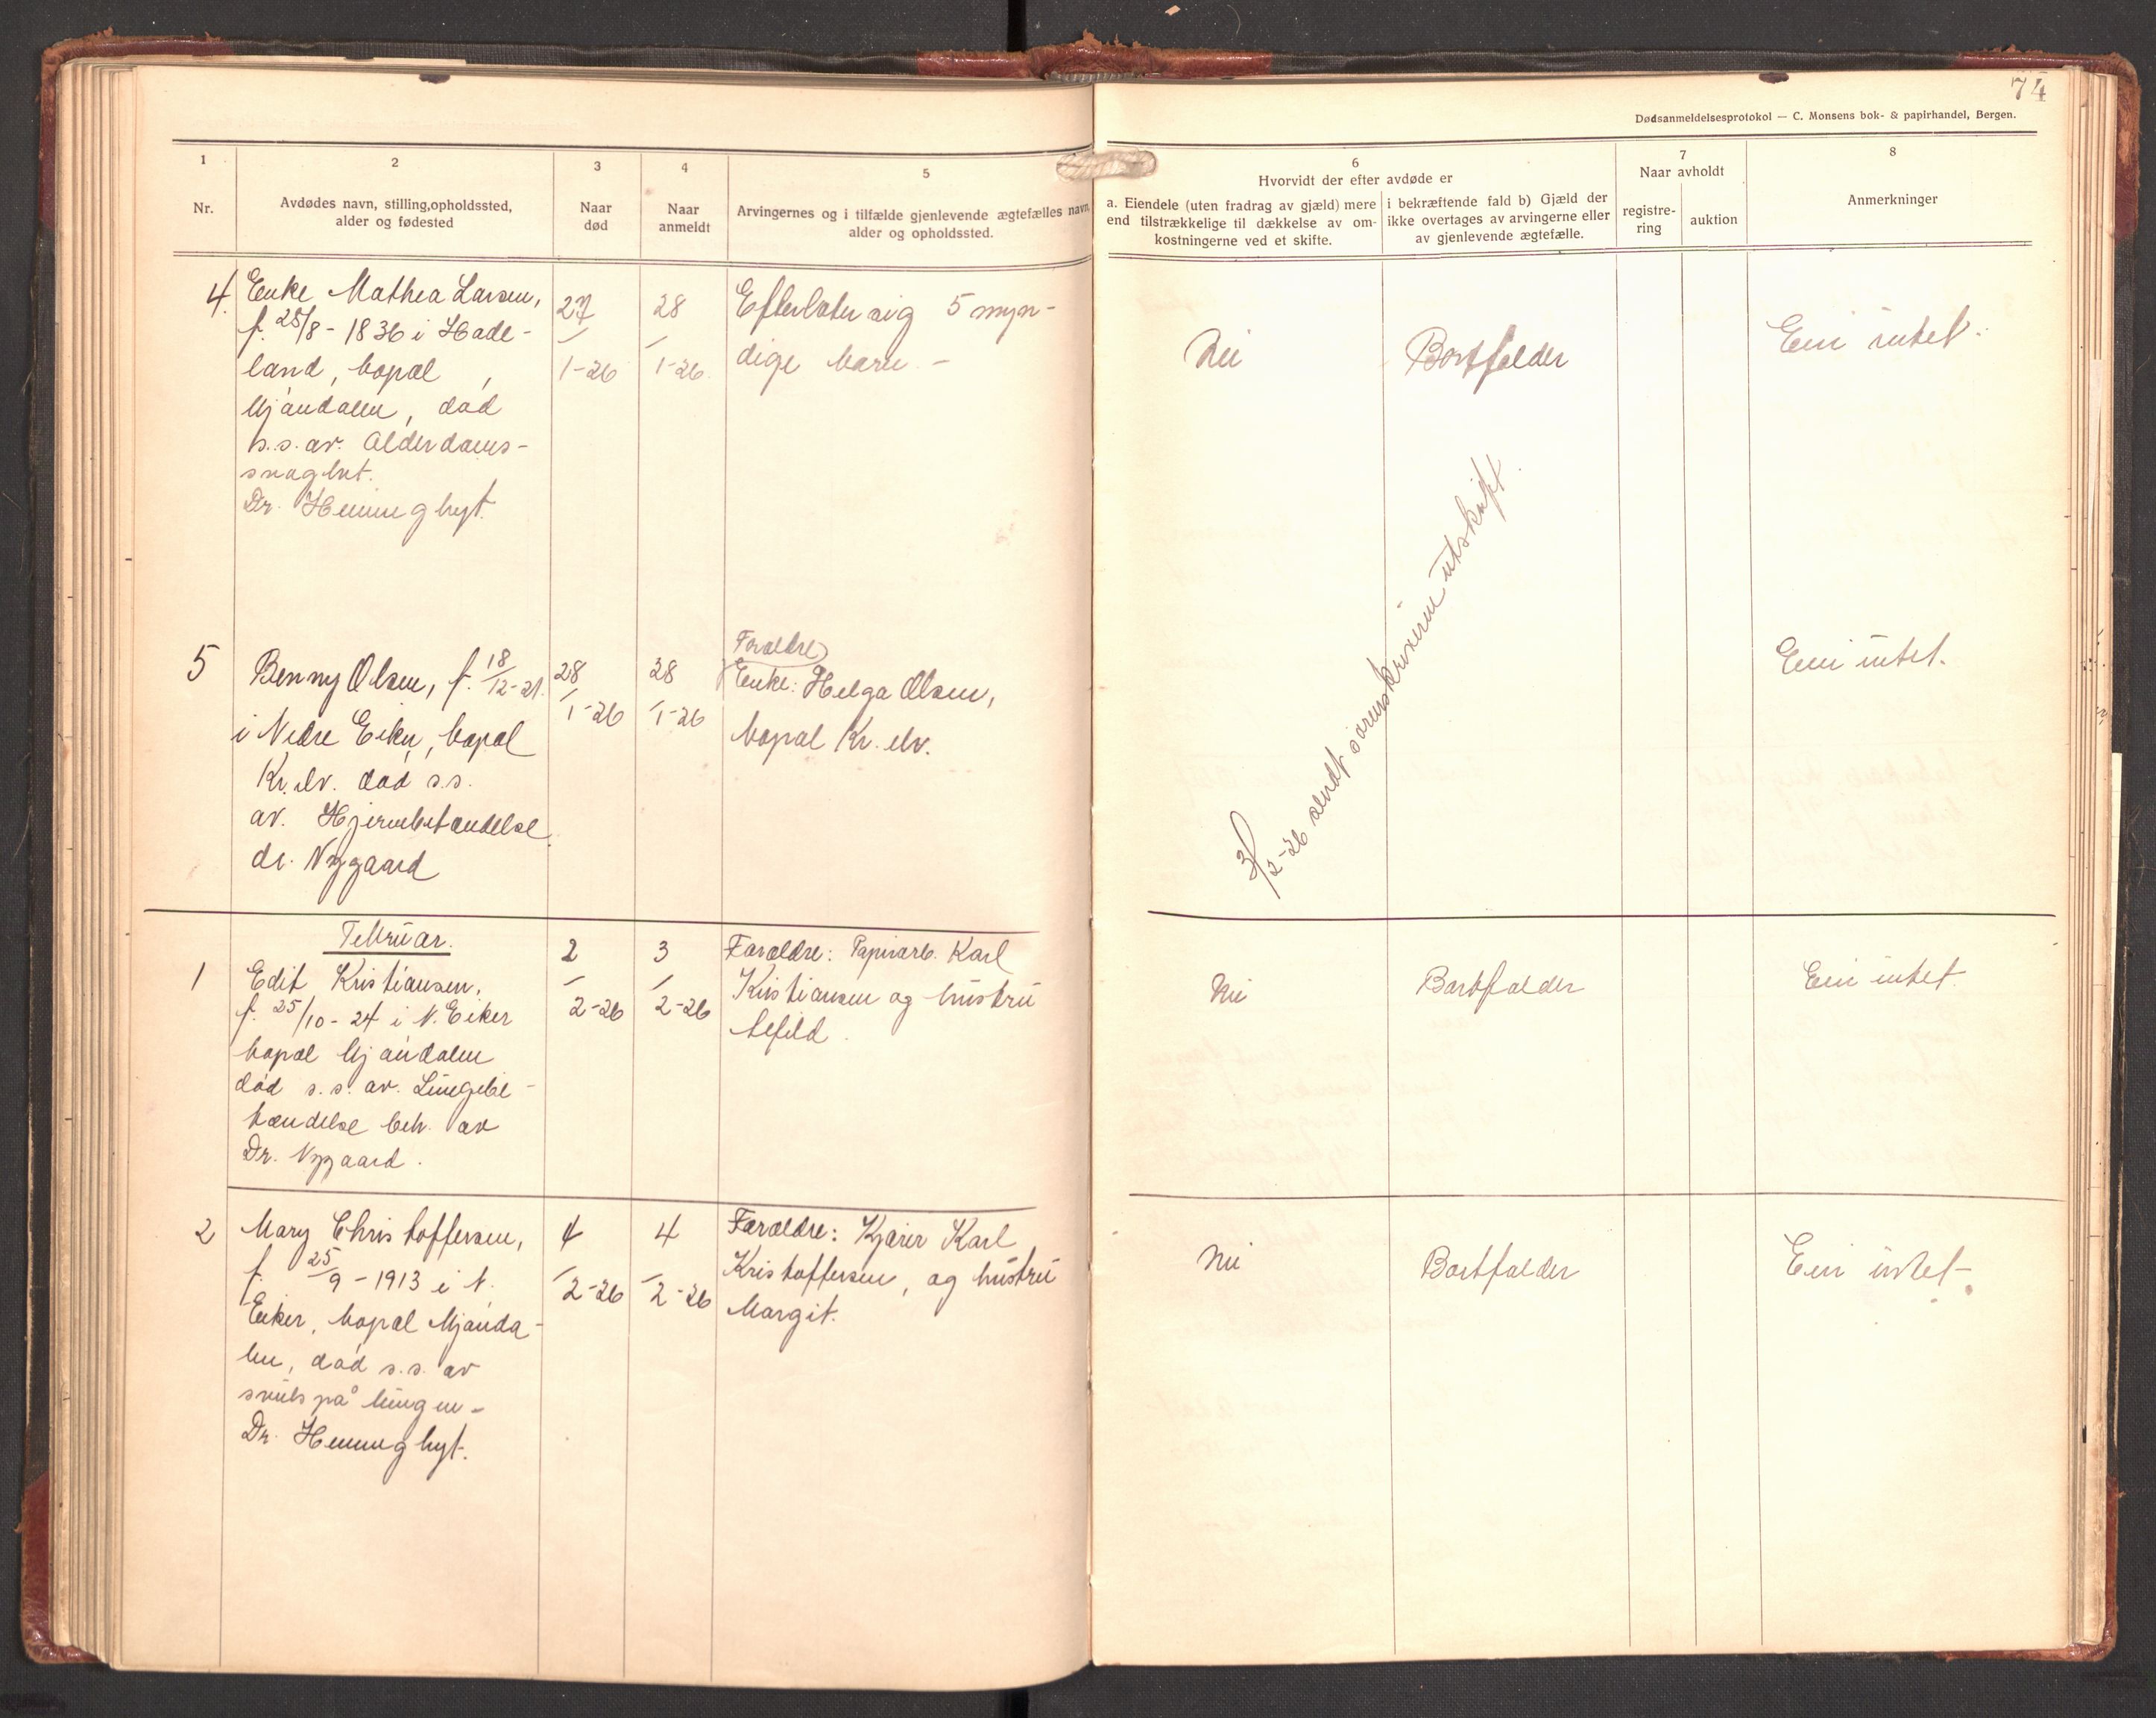 74
Dødsanmeldelsesprotokol — C. Monsens bok- & papirhandel, Bergen.
1
Nr.
2
Avdødes navn, stilling,opholdssted,
alder og fødested
3
Naar
død
4
Naar
anmeldt
5
Arvingernes og i tilfælde gjenlevende ægtefælles navn
alder og opholdssted.
6
Hvorvidt der efter avdøde er
a. Eiendele (uten fradrag av gjæld) mere
end tilstrækkelige til dækkelse av om-
kostningerne ved et skifte.
i bekræftende fald b) Gjæld der
ikke overtages av arvingerne eller
av gjenlevende ægtefælle.
7
Naar avholdt
registre-
ring
auktion
8
Anmerkninger
4.
Enke Mathea Larsen,
f. 28/8 - 1836 i Hade-
land, bopæl
Mjøndalen, død
s.s. av. Alderdoms-
svaghet.
Dr. Henning hyt.
27
/
1-26
28
/
1-26.
Efterlater sig 5 myn-
dige barn. -
Nei
Bortfalder
Eier intet.
5
Benny Olsen, f. 18/12-21.
i Nedre Eiker, bopæl
Kr. elv. død s.s.
av. Hjernebetændelse.
dr. Nygaard
28
/
1-26
28
/
1-26
Forældre
Enke: Helga Olsen,
bopæl Kr. elv.
Eier intet.
3/2-26 sendt sorenskriveren utskrift.
Februar.
1
Edit Kristiansen,
f. 25/10-24 i N. Eiker
bopæl Mjøndalen
død s.s. av. Lungebe-
tændelse beh. av
Dr. Nygaard.
2
/
2-26
3
/
2-26
Forældre: Papirarb. Karl
Kristiansen og hustru
Nei
Bortfalder
Eier intet.
2
Mary Christoffersen,
f. 25/9-1913 i N.
Eiker, bopæl Mjønda-
len, død s.s. av
svuls på lungen -
Dr. Henning hyt.
4
/
2-26
4
/
2-26
Forældre: Kjører Karl
Kristoffersen, og hustru
Margit.
Nei
Bortfalder
Eier intet -